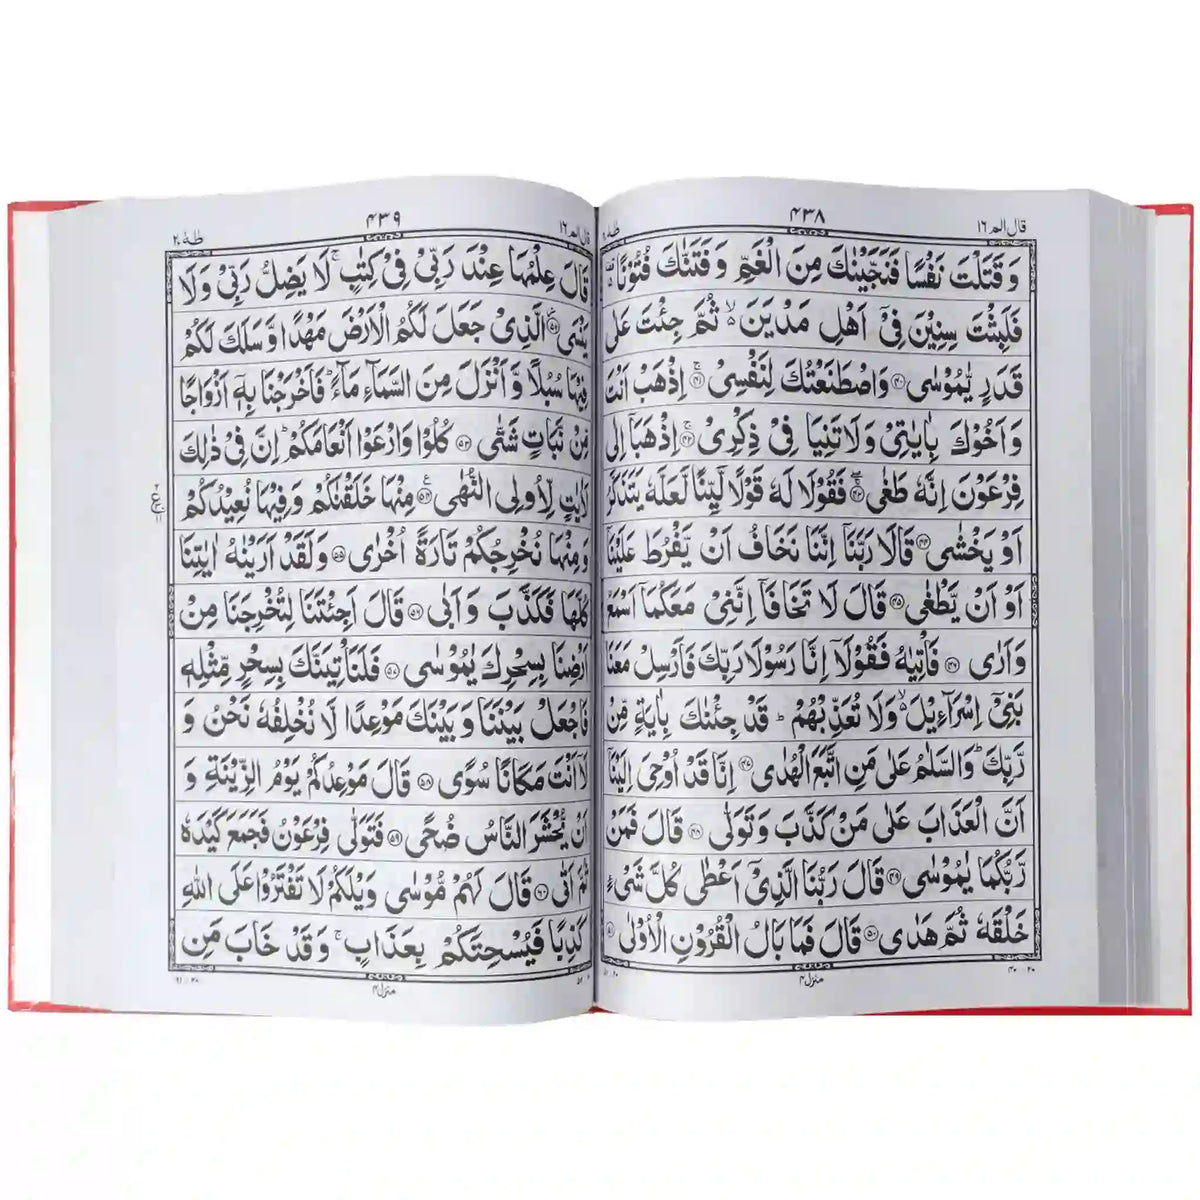 قال الم ١٦
٤٣٨
طٰهٰ ٢٠
وَ قَتَلْتَ نَفْسًا فَنَجَّيْنٰكَ مِنَ الْغَمِّ وَ فَتَنّٰكَ فُتُوْنًا ۫
فَلَبِثْتَ سِنِيْنَ فِيْۤ اَهْلِ مَدْيَنَ ۙ۬ ثُمَّ جِئْتَ عَلٰى
قَدَرٍ يّٰمُوْسٰى ﴿۴۰﴾ وَ اصْطَنَعْتُكَ لِنَفْسِيْ ۚ﴿۴۱﴾ اِذْهَبْ اَنْتَ
وَ اَخُوْكَ بِاٰيٰتِيْ وَ لَا تَنِيَا فِيْ ذِكْرِيْ ۚ﴿۴۲﴾ اِذْهَبَاۤ اِلٰى
فِرْعَوْنَ اِنَّهٗ طَغٰى ۚۖ﴿۴۳﴾ فَقُوْلَا لَهٗ قَوْلًا لَّيِّنًا لَّعَلَّهٗ يَتَذَكَّرُ
اَوْ يَخْشٰى ﴿۴۴﴾ قَالَا رَبَّنَاۤ اِنَّنَا نَخَافُ اَنْ يَّفْرُطَ عَلَيْنَاۤ
اَوْ اَنْ يَّطْغٰى ﴿۴۵﴾ قَالَ لَا تَخَافَاۤ اِنَّنِيْ مَعَكُمَاۤ اَسْمَعُ
وَ اَرٰى ﴿۴۶﴾ فَاْتِيٰهُ فَقُوْلَاۤ اِنَّا رَسُوْلَا رَبِّكَ فَاَرْسِلْ مَعَنَا
بَنِيْۤ اِسْرَآءِيْلَ ۙ۬ وَ لَا تُعَذِّبْهُمْ ؕ قَدْ جِئْنٰكَ بِاٰيَةٍ مِّنْ
رَّبِّكَ ؕ وَ السَّلٰمُ عَلٰى مَنِ اتَّبَعَ الْهُدٰى ﴿۴۷﴾ اِنَّا قَدْ اُوْحِيَ اِلَيْنَاۤ
اَنَّ الْعَذَابَ عَلٰى مَنْ كَذَّبَ وَ تَوَلّٰى ﴿۴۸﴾ قَالَ فَمَنْ
رَّبُّكُمَا يٰمُوْسٰى ﴿۴۹﴾ قَالَ رَبُّنَا الَّذِيْۤ اَعْطٰى كُلَّ شَيْءٍ
خَلْقَهٗ ثُمَّ هَدٰى ﴿۵۰﴾ قَالَ فَمَا بَالُ الْقُرُوْنِ الْاُوْلٰى ﴿۵۱﴾
منزل ٤
قال الم ١٦
٤٣٩
طٰهٰ ٢٠
قَالَ عِلْمُهَا عِنْدَ رَبِّيْ فِيْ كِتٰبٍ ۚ لَا يَضِلُّ رَبِّيْ وَ لَا
يَنْسَى ﴿۵۲﴾ الَّذِيْ جَعَلَ لَكُمُ الْاَرْضَ مَهْدًا وَّ سَلَكَ لَكُمْ
فِيْهَا سُبُلًا وَّ اَنْزَلَ مِنَ السَّمَآءِ مَآءً ؕ فَاَخْرَجْنَا بِهٖۤ اَزْوَاجًا
مِّنْ نَّبَاتٍ شَتّٰى ﴿۵۳﴾ كُلُوْا وَ ارْعَوْا اَنْعَامَكُمْ ؕ اِنَّ فِيْ ذٰلِكَ
لَاٰيٰتٍ لِّاُولِي النُّهٰى ﴿۵۴﴾ مِنْهَا خَلَقْنٰكُمْ وَ فِيْهَا نُعِيْدُكُمْ
وَ مِنْهَا نُخْرِجُكُمْ تَارَةً اُخْرٰى ﴿۵۵﴾ وَ لَقَدْ اَرَيْنٰهُ اٰيٰتِنَا
كُلَّهَا فَكَذَّبَ وَ اَبٰى ﴿۵۶﴾ قَالَ اَجِئْتَنَا لِتُخْرِجَنَا مِنْ
اَرْضِنَا بِسِحْرِكَ يٰمُوْسٰى ﴿۵۷﴾ فَلَنَاْتِيَنَّكَ بِسِحْرٍ مِّثْلِهٖ
فَاجْعَلْ بَيْنَنَا وَ بَيْنَكَ مَوْعِدًا لَّا نُخْلِفُهٗ نَحْنُ وَ
لَاۤ اَنْتَ مَكَانًا سُوًى ﴿۵۸﴾ قَالَ مَوْعِدُكُمْ يَوْمُ الزِّيْنَةِ وَ
اَنْ يُّحْشَرَ النَّاسُ ضُحًى ﴿۵۹﴾ فَتَوَلّٰى فِرْعَوْنُ فَجَمَعَ كَيْدَهٗ
ثُمَّ اَتٰى ﴿۶۰﴾ قَالَ لَهُمْ مُّوْسٰى وَيْلَكُمْ لَا تَفْتَرُوْا عَلَى اللّٰهِ
كَذِبًا فَيُسْحِتَكُمْ بِعَذَابٍ ۚ وَ قَدْ خَابَ مَنِ
منزل ٤